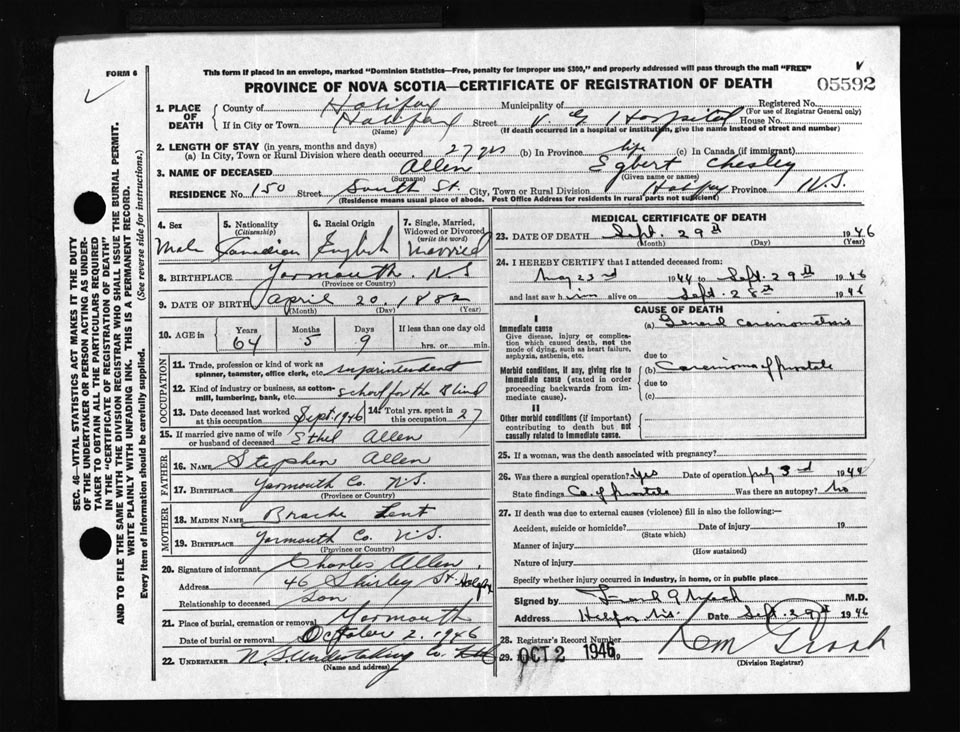 This form if placed in an envelope, marked "Dominion Statistics—Free, penalty for improper use $300," and properly addressed will pass through the mail "FREE"
FORM 6
PROVINCE OF NOVA SCOTIA—CERTIFICATE OF REGISTRATION OF DEATH
05592
1. PLACE OF DEATH County of Halifax Municipality of Registered No.
(For use of Registrar General only)
If in City or Town Halifax Street V. G Hospital House No.
(Name) (If death occurred in a hospital or institution, give the name instead of street and number)
2. LENGTH OF STAY (in years, months and days)
(a) In City, Town or Rural Division where death occurred 27 yrs (b) In Province life (c) In Canada (if immigrant)
3. NAME OF DECEASED Allen Egbert Chesley
(Surname) (Given name or names)
RESIDENCE No. 150 Street South St. City, Town or Rural Division Halifax Province N.S.
(Residence means usual place of abode. Post Office Address for residents in rural parts not sufficient)
SEC. 46—VITAL STATISTICS ACT MAKES IT THE DUTY
OF THE UNDERTAKER OR PERSON ACTING AS UNDER-
TAKER TO OBTAIN ALL THE PARTICULARS REQUIRED
IN THE "CERTIFICATE OF REGISTRATION OF DEATH"
AND TO FILE THE SAME WITH THE DIVISION REGISTRAR WHO SHALL ISSUE THE BURIAL PERMIT.
WRITE PLAINLY WITH UNFADING INK. THIS IS A PERMANENT RECORD.
Every item of information should be carefully supplied. (See reverse side for instructions.)
4. Sex Male
5. Nationality (Citizenship) Canadian
6. Racial Origin English
7. Single, Married, Widowed or Divorced (write the word) Married
8. BIRTHPLACE Yarmouth. N.S
(Province or Country)
9. DATE OF BIRTH April 20. 1882
(Month) (Day) (Year)
10. AGE in Years 64 Months 5 Days 9 If less than one day old hrs. or min.
OCCUPATION
11. Trade, profession or kind of work as spinner, teamster, office clerk, etc. superintendent
12. Kind of industry or business, as cotton-mill, lumbering, bank, etc. school for the Blind
13. Date deceased last worked at this occupation Sept. 1946 14. Total yrs. spent in this occupation 27
15. If married give name of wife or husband of deceased Ethel Allen
FATHER
16. NAME Stephen Allen
17. BIRTHPLACE Yarmouth Co. N.S.
(Province or Country)
MOTHER
18. MAIDEN NAME Lent
19. BIRTHPLACE Yarmouth Co. N.S.
(Province or Country)
20. Signature of informant Charles Allen
Address 46 Shirley St. Halifax
Relationship to deceased Son
21. Place of burial, cremation or removal Yarmouth
Date of burial or removal October 2. 1946
22. UNDERTAKER N.S. Undertaking Co. Ltd
(Name and address)
MEDICAL CERTIFICATE OF DEATH
23. DATE OF DEATH Sept. 29th 1946
(Month) (Day) (Year)
24. I HEREBY CERTIFY that I attended deceased from
May 23rd 1944 to Sept. 29th 1946
and last saw him alive on Sept. 28th 1946
CAUSE OF DEATH
I
Immediate cause (a) General carcinomatosis
Give disease, injury or complication which caused death, not the mode of dying, such as heart failure, asphyxia, asthenia, etc. due to
Morbid conditions, if any, giving rise to immediate cause (stated in order proceeding backwards from immediate cause). (b) Carcinoma of prostate
due to
(c)
II
Other morbid conditions (if important) contributing to death but not causally related to immediate cause.
25. If a woman, was the death associated with pregnancy?
26. Was there a surgical operation? Yes Date of operation July 3rd 1944
State findings Ca. of prostate Was there an autopsy? No
27. If death was due to external causes (violence) fill in also the following:—
Accident, suicide or homicide? Date of injury 19
(State which)
Manner of injury
(How sustained)
Nature of injury
Specify whether injury occurred in industry, in home, or in public place
Signed by Frank G Mack M.D.
Address Halifax N.S. Date Sept. 29th 1946
28. Registrar's Record Number
29. OCT 2 1946
(Division Registrar)